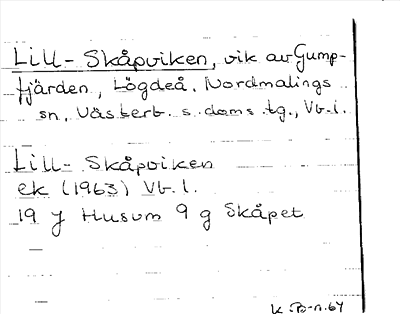 Lill-Skåpviken, vik av Gump-
fjärden, Lögdeå, Nordmalings
sn, Västerb. s. doms. tg., Vb. l.
Lill-Skåpviken
ek (1963) Vb. l.
19 J Husum 9 g Skåpet
K B-n. 64